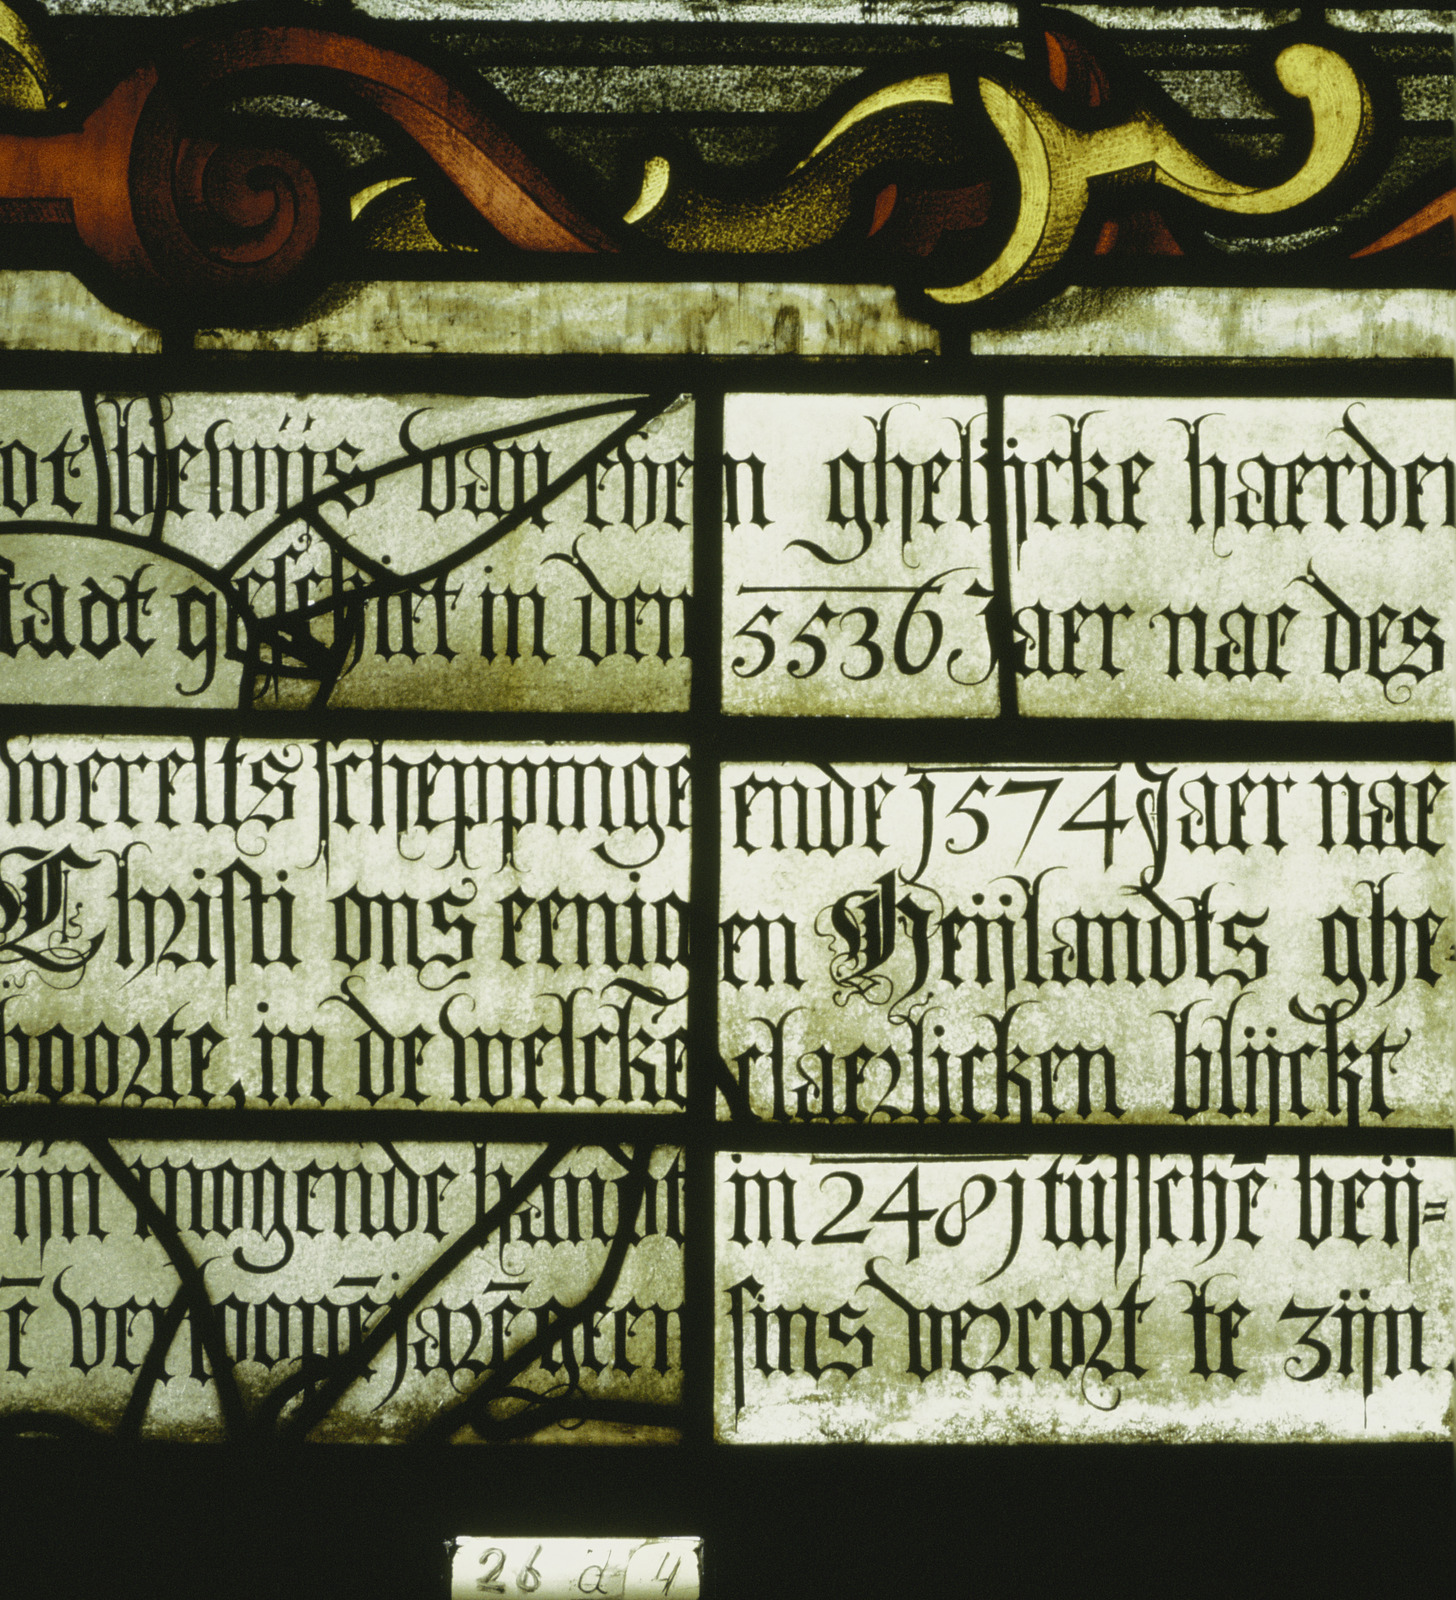 ot bewijs van even ghelijcke haerden
stadt geschiet in den 5536 Jaer nae des
werelts scheppinge ende 1574 Jaer nae
Christi ons eenigen Heijlandts ghe-
boorte, in de welcke claerlicken blijckt
zijn mogende handt in 2481 tusschē beij=
ē verloopē jarē geen sins vercort te zijn.
26 d 4